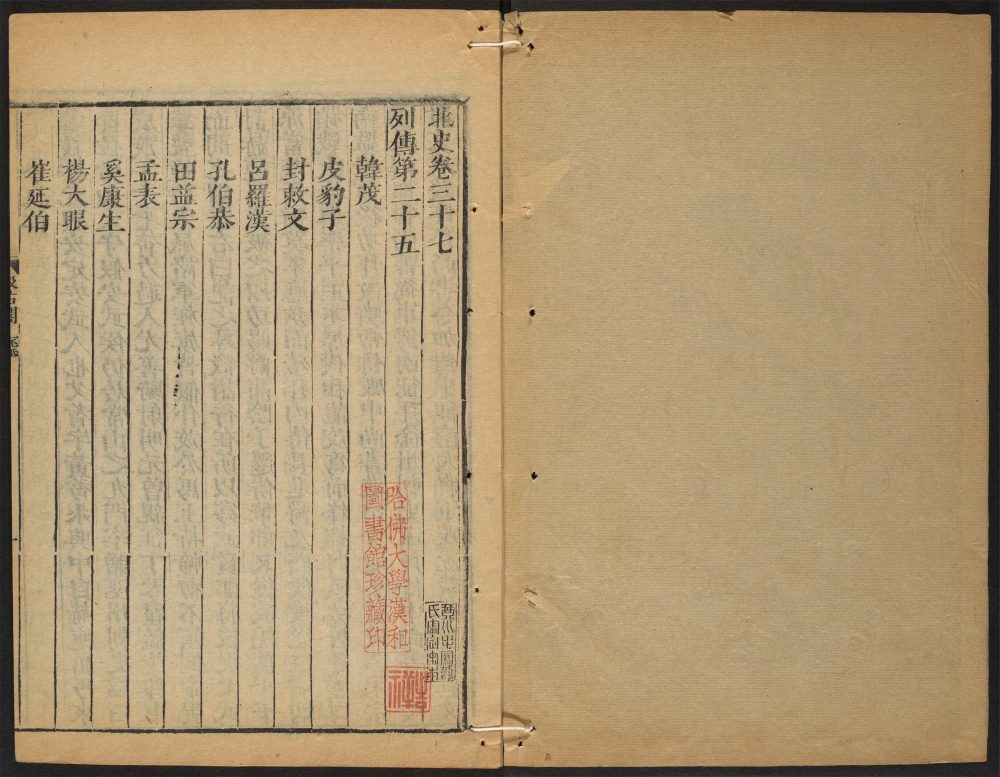 北史卷三十七
列傳第二十五
韓茂
皮豹子
封敕文
呂羅漢
孔伯恭
田益宗
孟表
奚康生
楊大眼
崔延伯
哈佛大學漢和
圖書館珍藏印